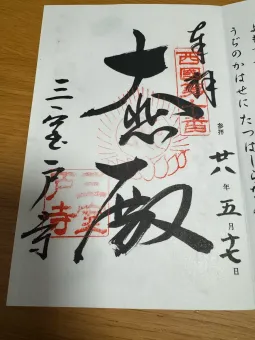 うぢのかはせに たつはしらなみ
奉拝
西國第十番
参拝
廿八年五月十七日
大悲殿
三室戸寺
三室戸寺